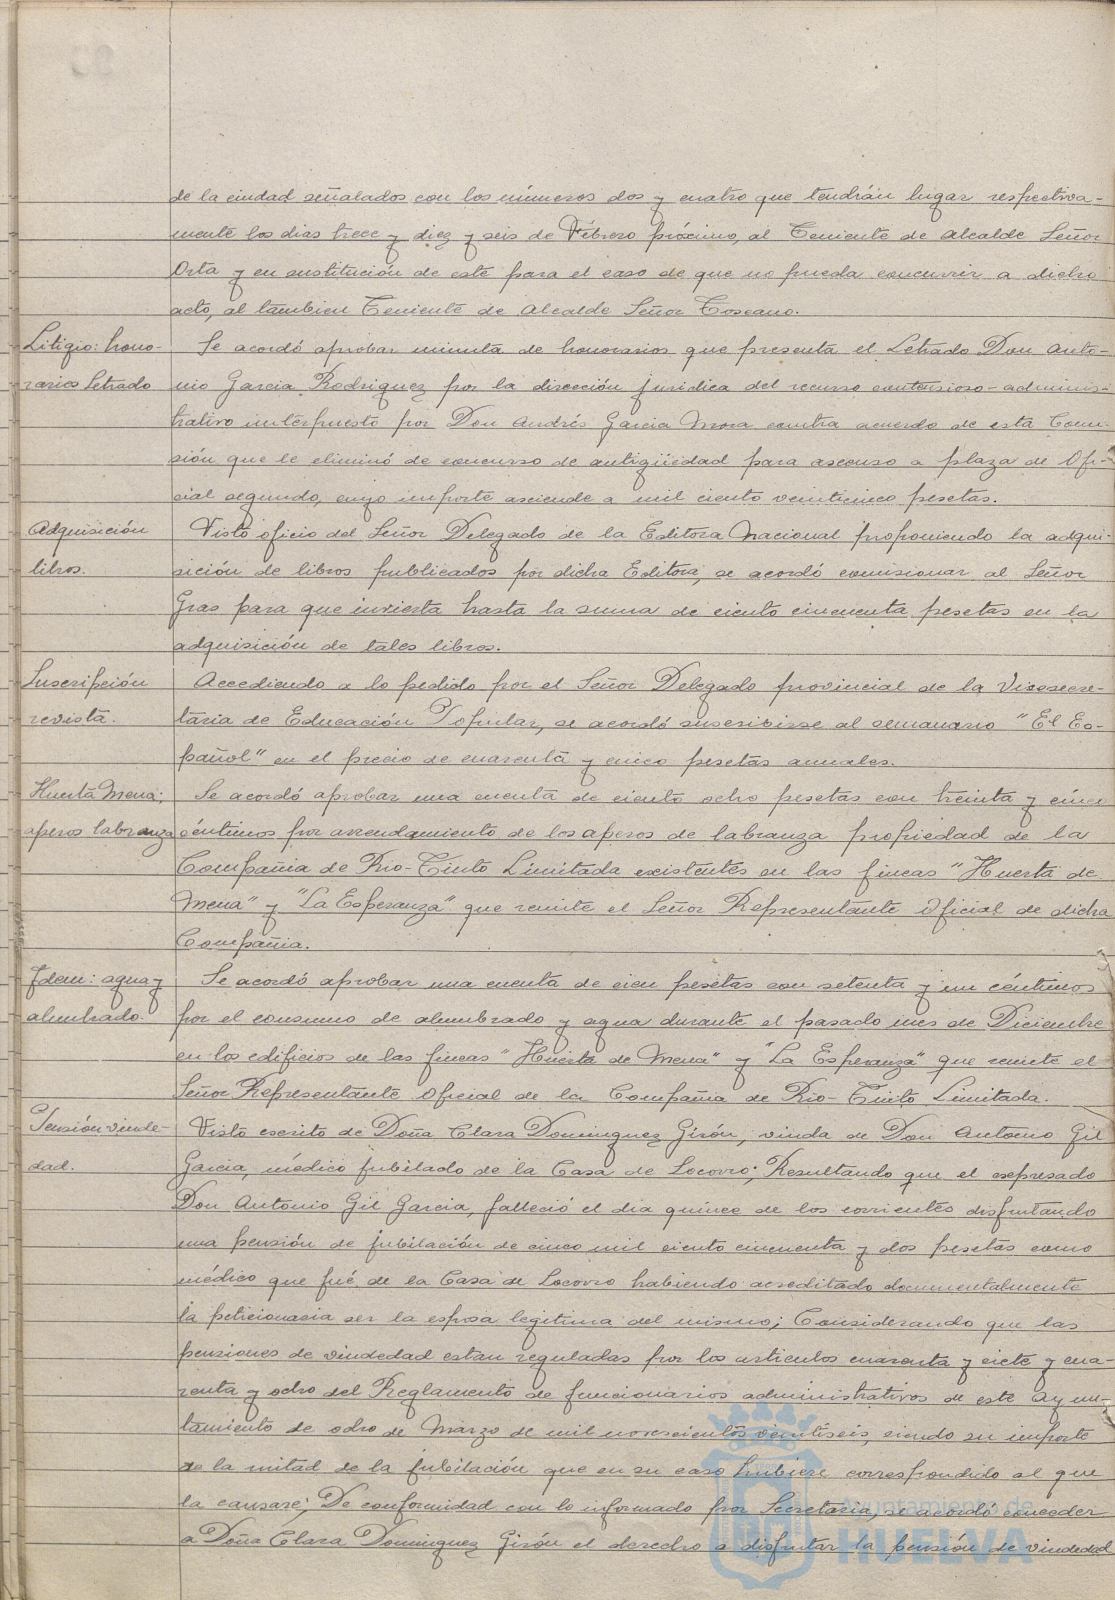 de la ciudad señalados con los números dos y cuatro que tendrán lugar respectiva-
mente los dias trece y diez y seis de Febrero próximo, al Teniente de Alcalde Señor
Orta y en sustitución de este para el caso de que no pueda concurrir a dicho
acto, al tambien Teniente de Alcalde Señor Toscano.
Litigio: hono-
rarios Letrado
Se acordó aprobar minuta de honorarios que presenta el Letrado Don Anto-
nio Garcia Rodriguez por la dirección juridica del recurso contensioso-adminis-
trativo interpuesto por Don Andrés Garcia Mora contra acuerdo de esta Comi-
sión que le eliminó de concurso de antigüedad para ascenso a plaza de Ofi-
cial segundo, cuyo importe asciende a mil ciento veinticinco pesetas.
Adquisición
libros.
Visto oficio del Señor Delegado de la Editora Nacional proponiendo la adqui-
sición de libros publicados por dicha Editora, se acordó comisionar al Señor
Gras para que invierta hasta la suma de ciento cincuenta pesetas en la
adquisición de tales libros.
Suscripción
revista.
Accediendo a lo pedido por el Señor Delegado provincial de la Vicesecre-
taria de Educación Popular, se acordó suscribirse al semanario "El Es-
pañol" en el precio de cuarenta y cinco pesetas anuales.
Huerta Mena;
aperos labranza
Se acordó aprobar una cuenta de ciento ocho pesetas con treinta y cinco
céntimos por arrendamiento de los aperos de labranza propiedad de la
Compañia de Rio-Tinto Limitada existentes en las fincas "Huerta de
Mena" y "La Esperanza" que remite el Señor Representante Oficial de dicha
Compañia.
Idem: agua y
alumbrado.
Se acordó aprobar una cuenta de cien pesetas con setenta y un céntimos
por el consumo de alumbrado y agua durante el pasado mes de Diciembre
en los edificios de las fincas "Huerta de Mena" y "La Esperanza" que remite el
Señor Representante Oficial de la Compañia de Rio-Tinto Limitada.
Pensión viude-
dad.
Visto escrito de Doña Clara Dominguez Girón, viuda de Don Antonio Gil
Garcia, médico jubilado de la Casa de Socorro; Resultando que el expresado
Don Antonio Gil Garcia, falleció el dia quince de los corrientes disfrutando
una pensión de jubilación de cinco mil ciento cincuenta y dos pesetas como
médico que fué de la Casa de Socorro habiendo acreditado documentalmente
la peticionaria ser la esposa legitima del mismo; Considerando que las
pensiones de viudedad estan reguladas por los articulos cuarenta y siete y cua-
renta y ocho del Reglamento de funcionarios administrativos de este Ayun-
tamiento de ocho de Marzo de mil novescientos veintiseis, siendo su importe
de la mitad de la jubilación que en su caso hubiere correspondido al que
la causare; De conformidad con lo informado por Secretaria, se acordó conceder
a Doña Clara Dominguez Girón el derecho a disfrutar la pensión de viudedad
Ayuntamiento de
HUELVA